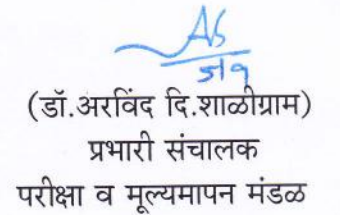 (डॉ.अरविंद दि.शाळीग्राम)
प्रभारी संचालक
परीक्षा व मूल्यमापन मंडळ